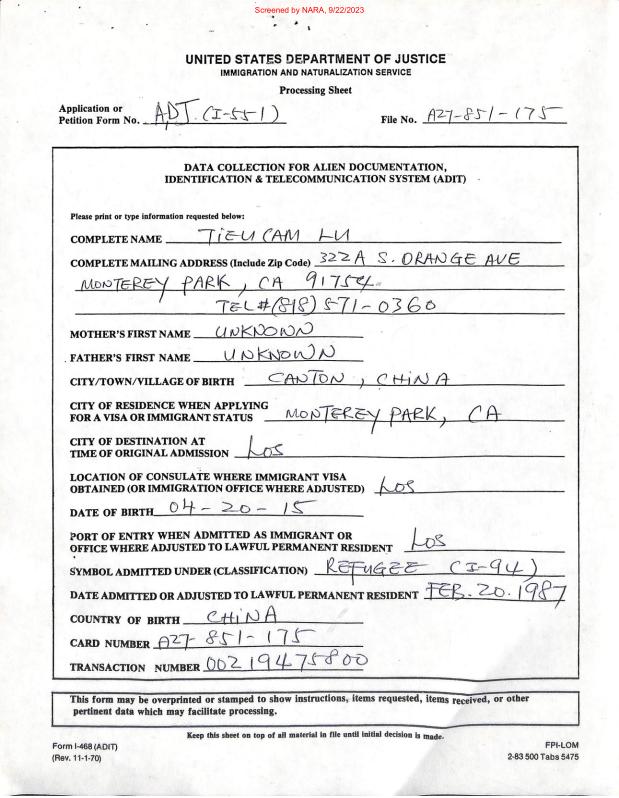 Screened by NARA, 9/22/2023
UNITED STATES DEPARTMENT OF JUSTICE
IMMIGRATION AND NATURALIZATION SERVICE
Processing Sheet
Application or
Petition Form No. ADJ. (I-551) File No. A27-851-175
DATA COLLECTION FOR ALIEN DOCUMENTATION,
IDENTIFICATION & TELECOMMUNICATION SYSTEM (ADIT)
Please print or type information requested below:
COMPLETE NAME TiEU CAM LU
COMPLETE MAILING ADDRESS (Include Zip Code) 322A S. ORANGE AVE
MONTEREY PARK, CA 91754
TEL#(818) 571-0360
MOTHER'S FIRST NAME UNKNOWN
FATHER'S FIRST NAME UNKNOWN
CITY/TOWN/VILLAGE OF BIRTH CANTON, CHiNA
CITY OF RESIDENCE WHEN APPLYING
FOR A VISA OR IMMIGRANT STATUS MONTEREY PARK, CA
CITY OF DESTINATION AT
TIME OF ORIGINAL ADMISSION LOS
LOCATION OF CONSULATE WHERE IMMIGRANT VISA
OBTAINED (OR IMMIGRATION OFFICE WHERE ADJUSTED) LOS
DATE OF BIRTH 04-20-15
PORT OF ENTRY WHEN ADMITTED AS IMMIGRANT OR
OFFICE WHERE ADJUSTED TO LAWFUL PERMANENT RESIDENT LOS
SYMBOL ADMITTED UNDER (CLASSIFICATION) REFUGEE (I-94)
DATE ADMITTED OR ADJUSTED TO LAWFUL PERMANENT RESIDENT FEB. 20. 1987
COUNTRY OF BIRTH CHiNA
CARD NUMBER A27-851-175
TRANSACTION NUMBER 00219475800
This form may be overprinted or stamped to show instructions, items requested, items received, or other
pertinent data which may facilitate processing.
Keep this sheet on top of all material in file until initial decision is made.
Form I-468 (ADIT) FPI-LOM
(Rev. 11-1-70) 2-83 500 Tabs 5475